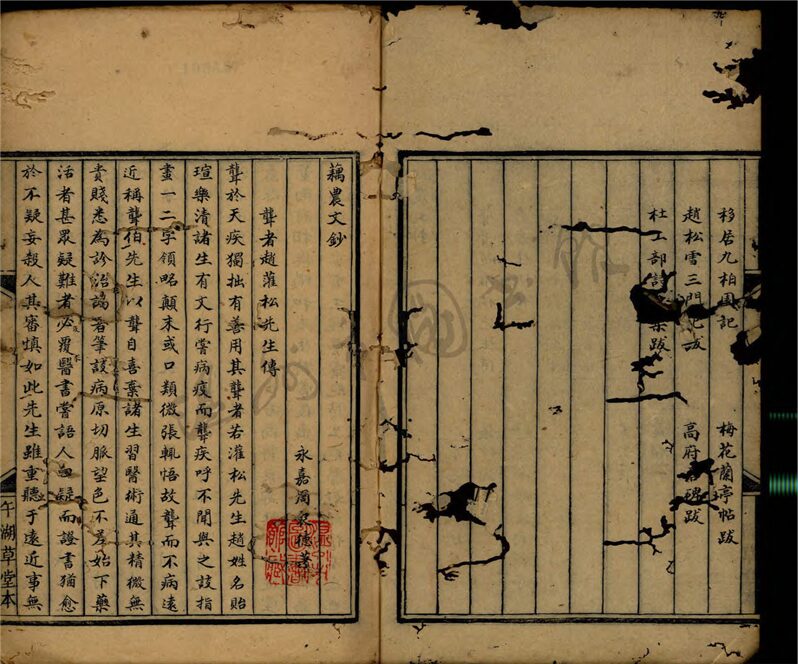 移居九柏園記
梅花蘭亭帖跋
趙松雪三門記跋
高府君碑跋
杜工部詩集跋
藕農文鈔
永嘉周 德著
聾者趙灌松先生傳
聾於天疾獨拙有善用其聾者若灌松先生趙姓名貽
瑄樂清諸生有文行嘗病疫而聾疾呼不聞與之談指
畫一二字領略顛末或口類微張輒悟故聾而不病遠
近稱聾伯先生以聾自喜棄諸生習醫術通其精微無
貴賤悉為診治謁者筆談病原切脈望色不差始下藥
活者甚眾疑難者必反覆醫書嘗語人 疑而證書猶愈
於不疑妄殺人其審慎如此先生雖重聽于遠近事無
午湖草堂本